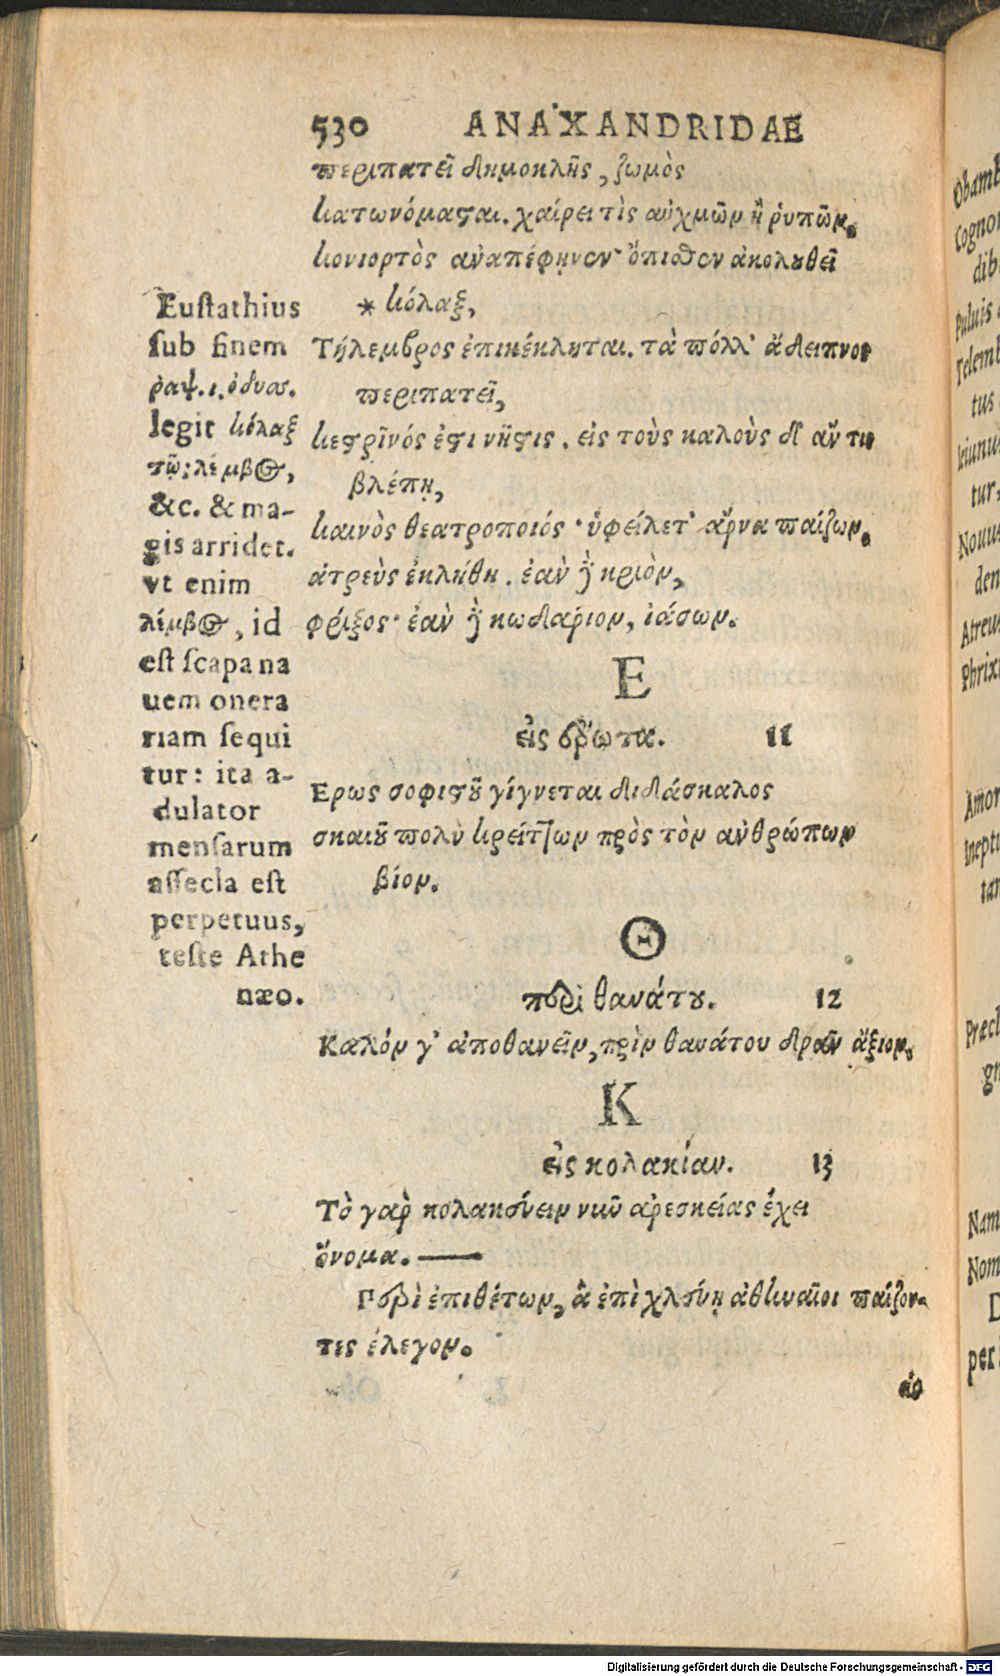 530 ANAXANDRIDAE
περιπατεῖ δημοκλῆς, ζωμὸς
κατωνόμασαι. χαίρει τὶς αὐχμῶν ἢ ῥυπῶν,
κονιορτὸς ἀναπέφηνεν· ὄπισθεν ἀκολουθεῖ
* κόλαξ,
Τήλεμβρος ἐπικέκληται. τὰ πόλλ' ἄδειπνος
περιπατεῖ,
κεστρῖνός ἐστι νῆστις. εἰς τοὺς καλοὺς δ' ἄν τις
βλέπῃ,
καινὸς θεατροποιός· ὑφείλετ' ἄρνα παίζων,
ἀτρεὺς ἐκλήθη. ἐὰν ἢ κριὸν,
φρίξος· ἐὰν ἢ κωδάριον, ἰάσων.
Eustathius
sub finem
ῥαψ. ι. ὀδυσ.
legit κόλαξ
τῷ; λέμβος,
&c. & ma-
gis arridet.
vt enim
λέμβος, id
est scapa na
uem onera
riam sequi
tur: ita a-
dulator
mensarum
assecla est
perpetuus,
teste Athe
næo.
E
εἰς ἔρωτα. 11
Ερως σοφιστοῦ γίγνεται διδάσκαλος
σκαιοῦ πολὺ κρείττων πρὸς τὸν ἀνθρώπων
βίον.
Θ
περὶ θανάτου. 12
Καλόν γ' ἀποθανεῖν, πρὶν θανάτου δρᾶν ἄξιον,
K
εἰς κολακίαν. 13
Τὸ γὰρ κολακεύειν νῦν ἀρεσκείας ἔχει
ὄνομα. —
Περὶ ἐπιθέτων, ἃ ἐπὶ χλεύῃ ἀθηναῖοι παίζον-
τες ἔλεγον.